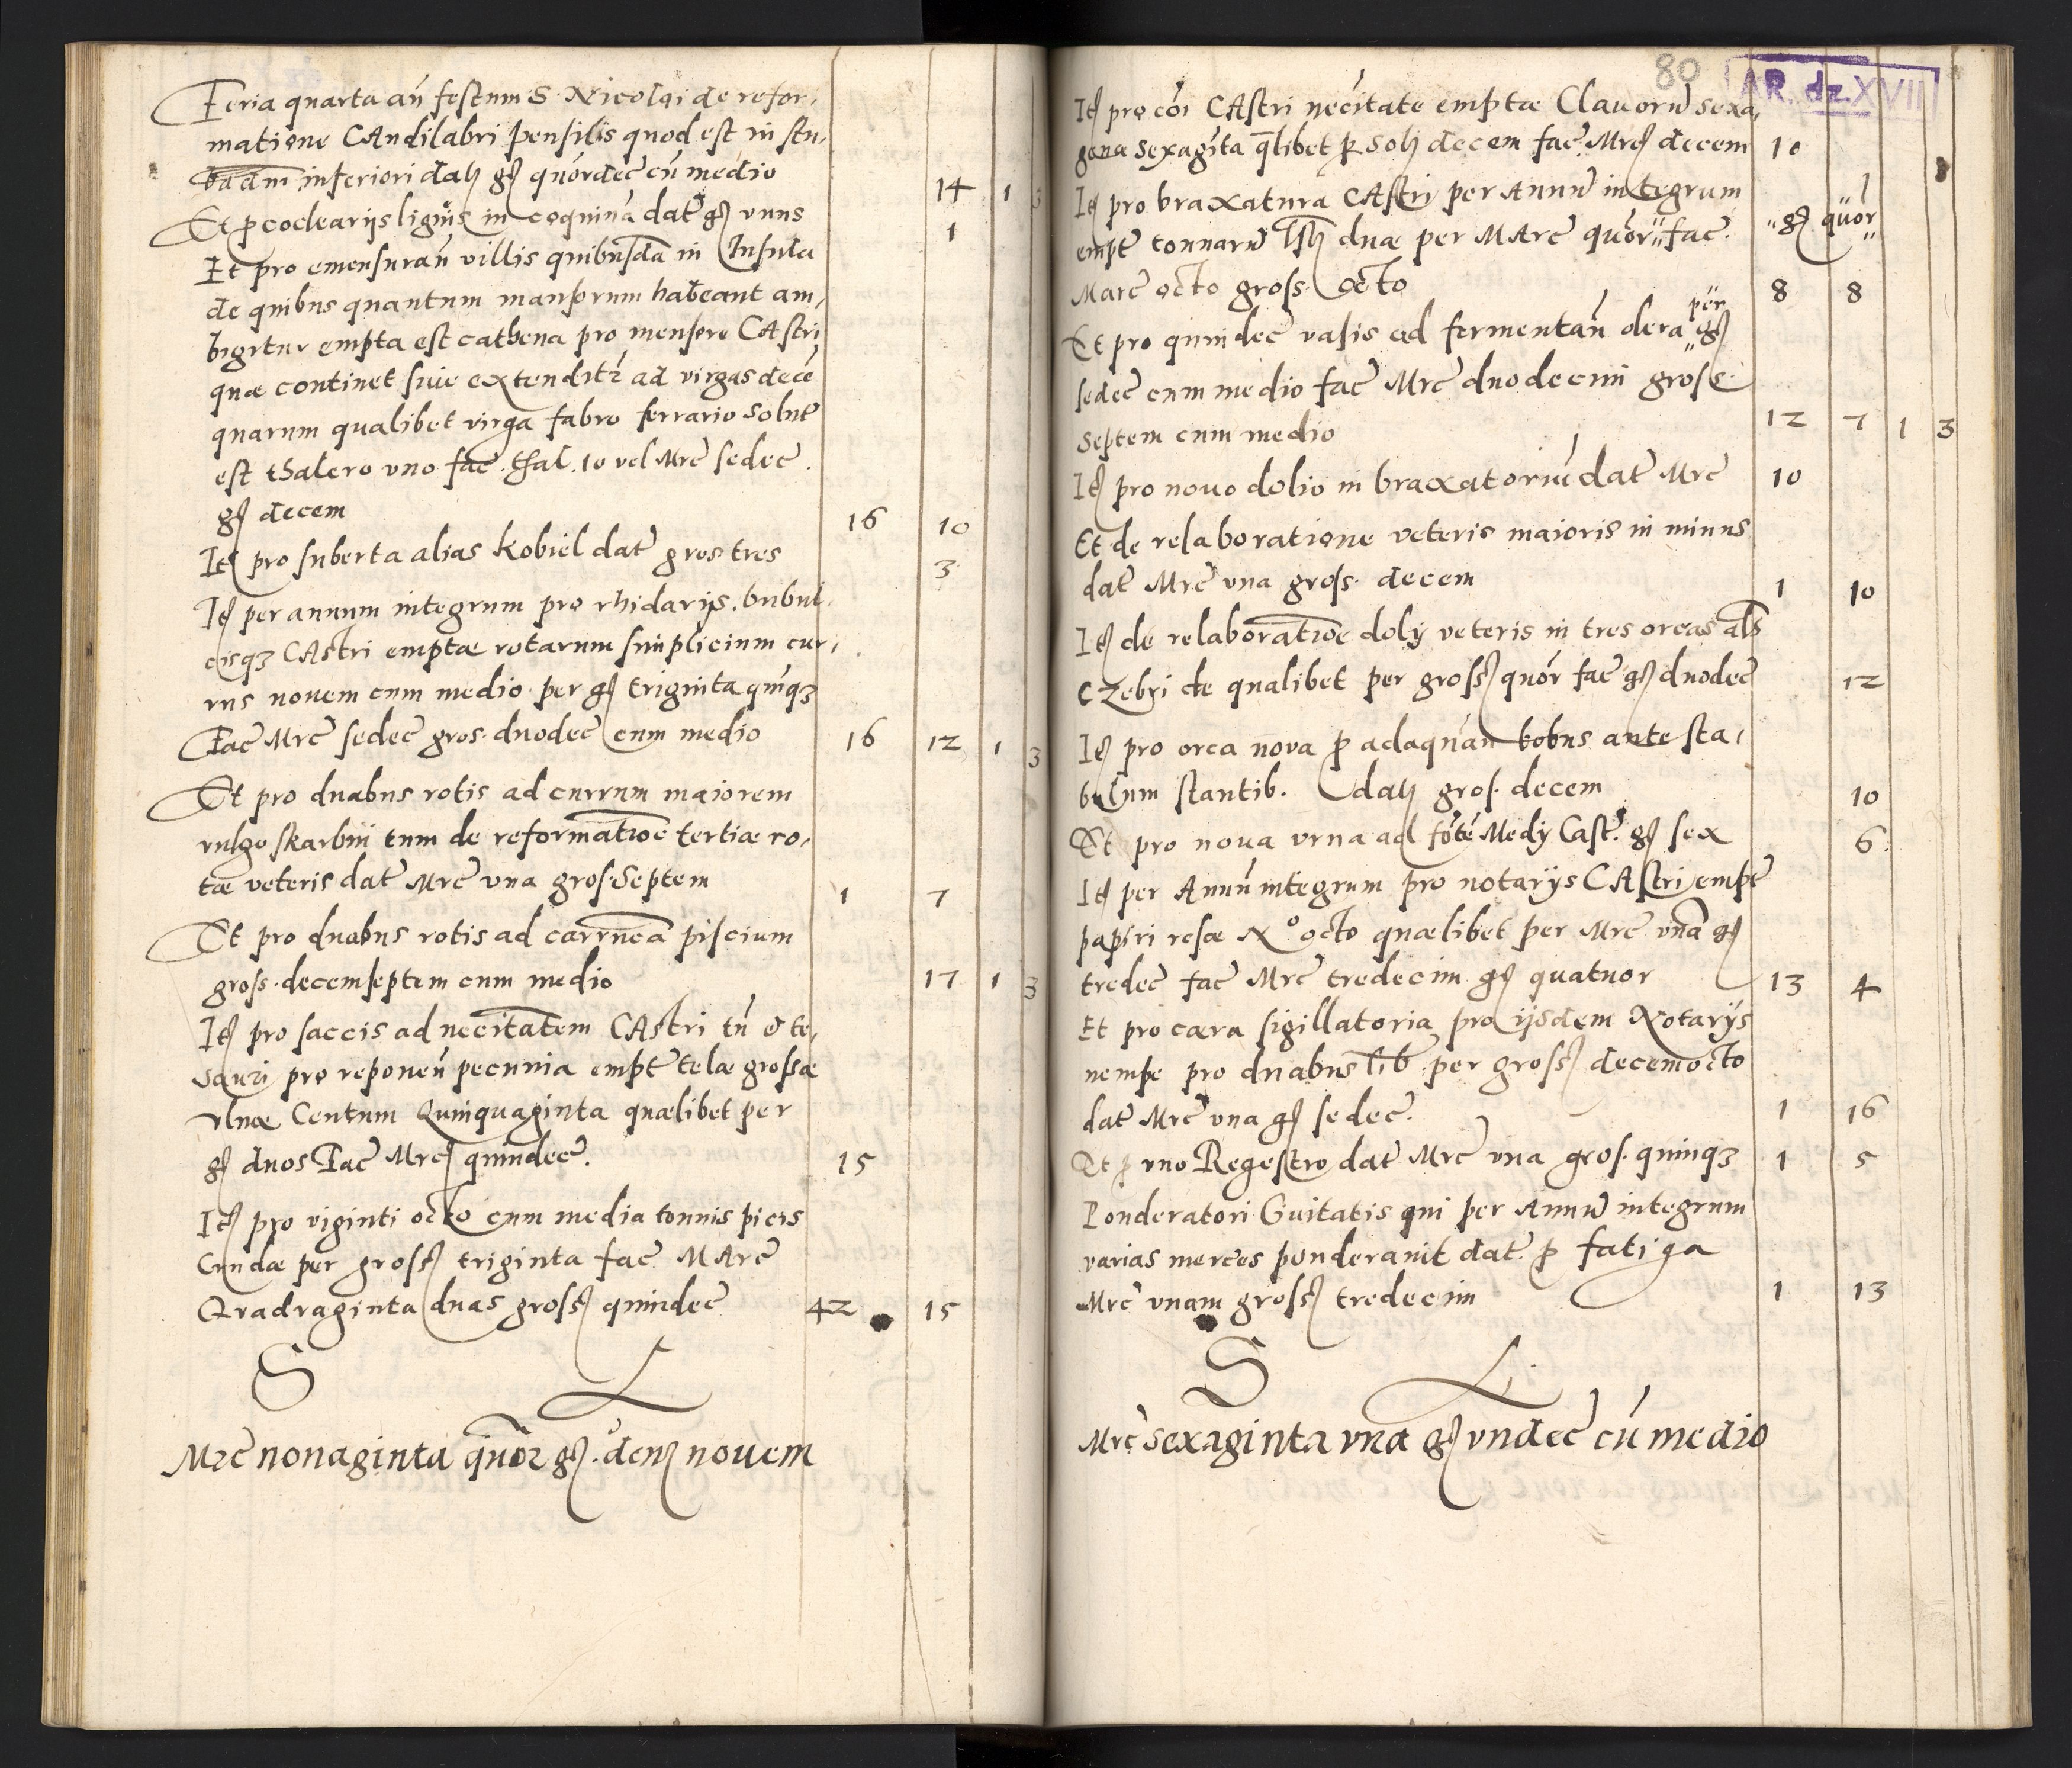 Feria quarta añ festum S. Nicolai de refor,
matione CAndilabri pensilis quod est in stu,
inferiori datj gß quordec̃ cũ medio 14 1 3
Et p coclearijs ligneis in coquina dat gß vnus 1
Et pro emensurañ villis quibusdã in Insula
de quibus quantum mansorum habeant am,
bigitur empta est cathena pro mensore CAstri
quæ continet siue extendit2 ad virgas decẽ
quarum qualibet virga fabro ferrario solut̃
est thalero vno fac̃. thal. 10 vel Mrc̃ sedec̃.
gß decem 16 10
Itß pro suberta alias kobiel dat̃ gros tres 3
Itß per annum integrum pro rhidarijs. bubul,
cisq3 CAstri emptæ rotarum simplicium cur,
rus nouem cum medio per gß triginta quinq3
Fac̃ Mrc̃ sedec̃ gros. duodec̃ cum medio 16 12 1 3
Et pro duabus rotis ad currum maiorem
vulgo skarbni tum de reformatioe tertiæ ro,
tæ veteris dat̃ Mrc̃ vna gros. Septem 1 7
Et pro duabus rotis ad carrucã piscium
gross. decemseptem cum medio 17 1 3
Itß pro saccis ad necitatem CAstri tũ & te,
sauri pro reponeñ pecunia empt̃ telæ grossæ
vlnæ Centum Quinquaginta quælibet per
gß duos Fac̃ Mrcß quindec̃. 15
Itß pro viginti octo cum media tonnis picis
Crudæ per grossß triginta fac̃ MArc̃
Qradraginta duas grossß quindec̃ 42 15
S L
Mrc̃ nonaginta quor gß. denß nouem
80 AR. dz. XVII
Itß pro cõi CAstri necitate emptæ Clauorũ sexa,
gena Sexagita qlibet p Solj decem fac̃ Mrcß decem 10
Itß pro braxatura CAstri per Annũ integrum
empt̃ tonnarũ duæ per MArc̃ quor fac̃. gß quor
Marc̃ octo gross. octo 8 8
Et pro quindec̃ vasis ad fermentañ per gß
sedec̃ cum medio fac̃ Mrc̃ duodecim gross
septem cum medio 12 7 1 3
Itß pro nouo dolio in braxatoriũ dat̃ Mrc̃ 10
Et de relaboratione veteris maioris in minus
dat̃ Mrc̃ vna gross. decem 1 10
Itß de relaboratioe dolij veteris in tres orcas als
Czebri de qualibet per grossß quor fac̃ gß duodec̃ 12
Itß pro orca nova p adaquañ bobus ante sta,
bulum stantib. datj gros. decem 10
Et pro noua vrna ad fõtẽ Medij Cast̃. gß sex 6
Itß per Annũ integrum pro notarijs CAstri empt̃
papiri resæ No octo quælibet per Mrc̃ vnã gß
tredec̃ fac̃ Mrc̃ tredecim gß quatuor 13 4
Et pro cæra sigillatoria pro ijsdem Notarijs
nempe pro duabus lib. per grossß decemocto
dat̃ Mrc̃ vna gß sedec̃. 1 16
Et p vno Regestro dat̃ Mrc̃ vna gros. quinq3 1 5
Ponderatori Ciuitatis qui per Annũ integrum
varias merces ponderauit dat̃. p fatiga
Mrc̃ vnam grossß tredecim 1 13
S L
Mrc̃ sexaginta vna gß vndec̃ cũ medio